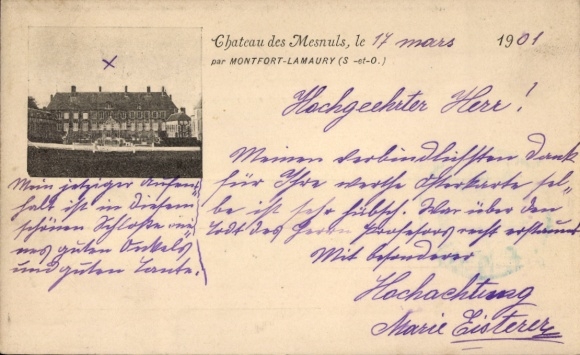 Chateau des Mesnuls, le 17 mars 1901
par MONTFORT-LAMAURY (S.-et-O.)
Hochgeehrter Herr!
Meinen verbindlichsten Dank
für Ihre werthe Osterkarte sel-
be ist sehr hübsch. War über den
Todt des Herrn Profesors recht erstaunt
Mit besonderer
Hochachtung
Marie Eisterer
Mein jetziger Aufent
halt ist in diesem
schönen Schloße mei-
nes guten Onkels
und guten Tante.